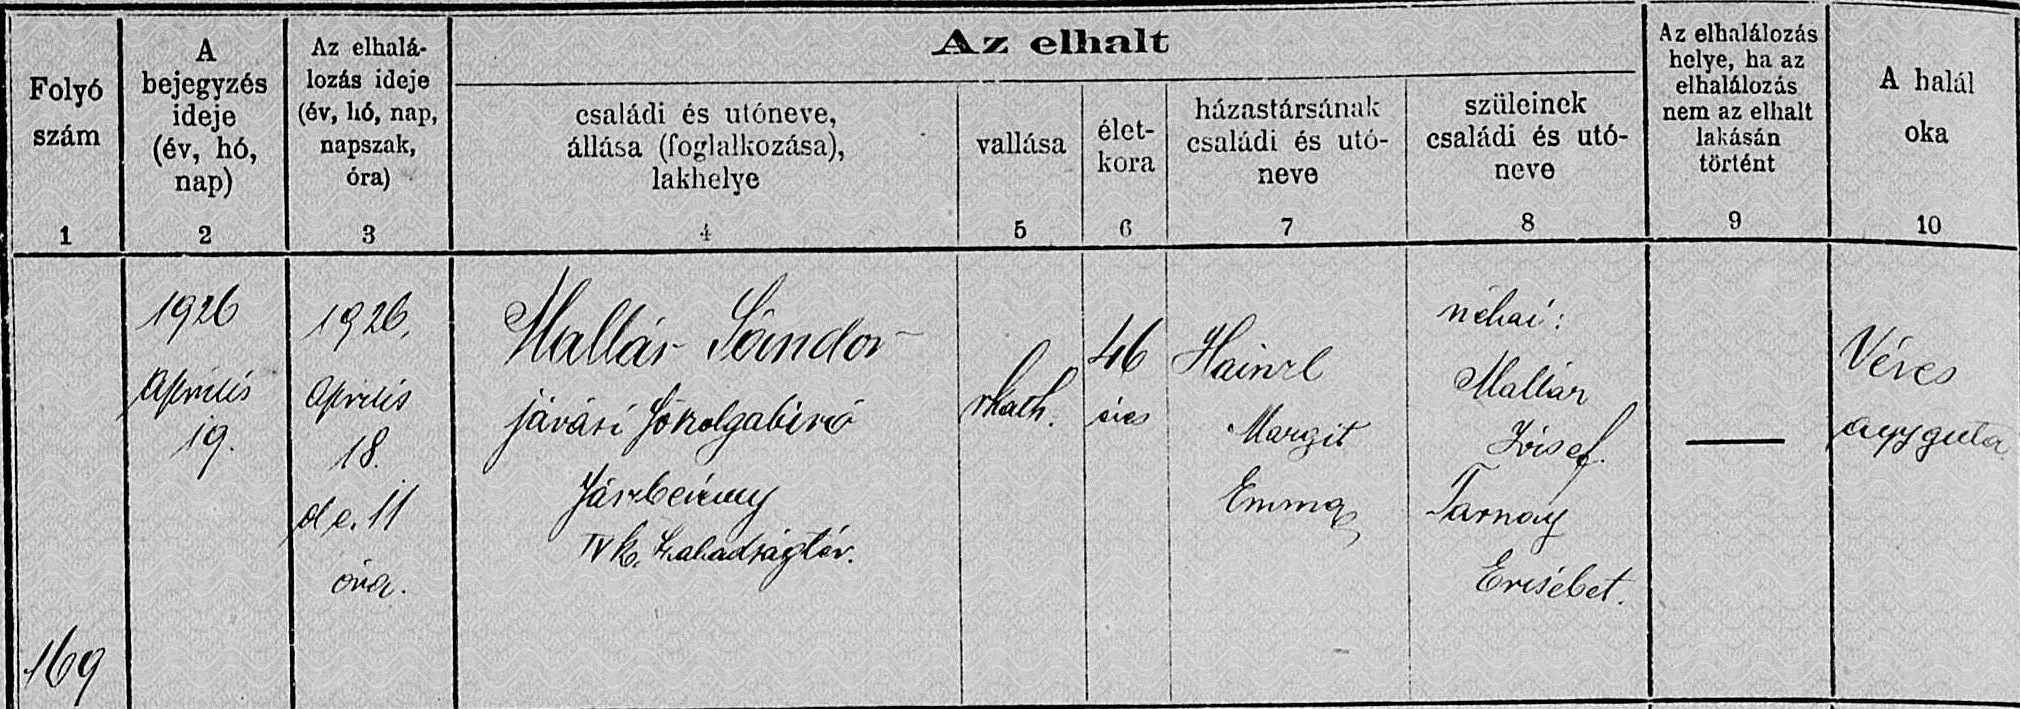 Az elhalt
Folyó
szám
1
A
bejegyzés
ideje
(év, hó,
nap)
2
Az elhalá-
lozás ideje
(év, hó, nap,
napszak,
óra)
3
családi és utóneve,
állása (foglalkozása),
lakhelye
4
vallása
5
élet-
kora
6
házastársának
családi és utó-
neve
7
szüleinek
családi és utó-
neve
8
Az elhalálozás
helye, ha az
elhalálozás
nem az elhalt
lakásán
történt
9
A halál
oka
10
169
1926
április
19.
1926.
április
18.
de. 11
óra.
Mallár Sándor
járási főszolgabíró
Jászberény
IV k. Szabadságtér.
rkath.
46
éves
Hainzl
Margit
Emma
néhai:
Mallár
József.
Tarnay
Erzsébet.
Véres
agyguta